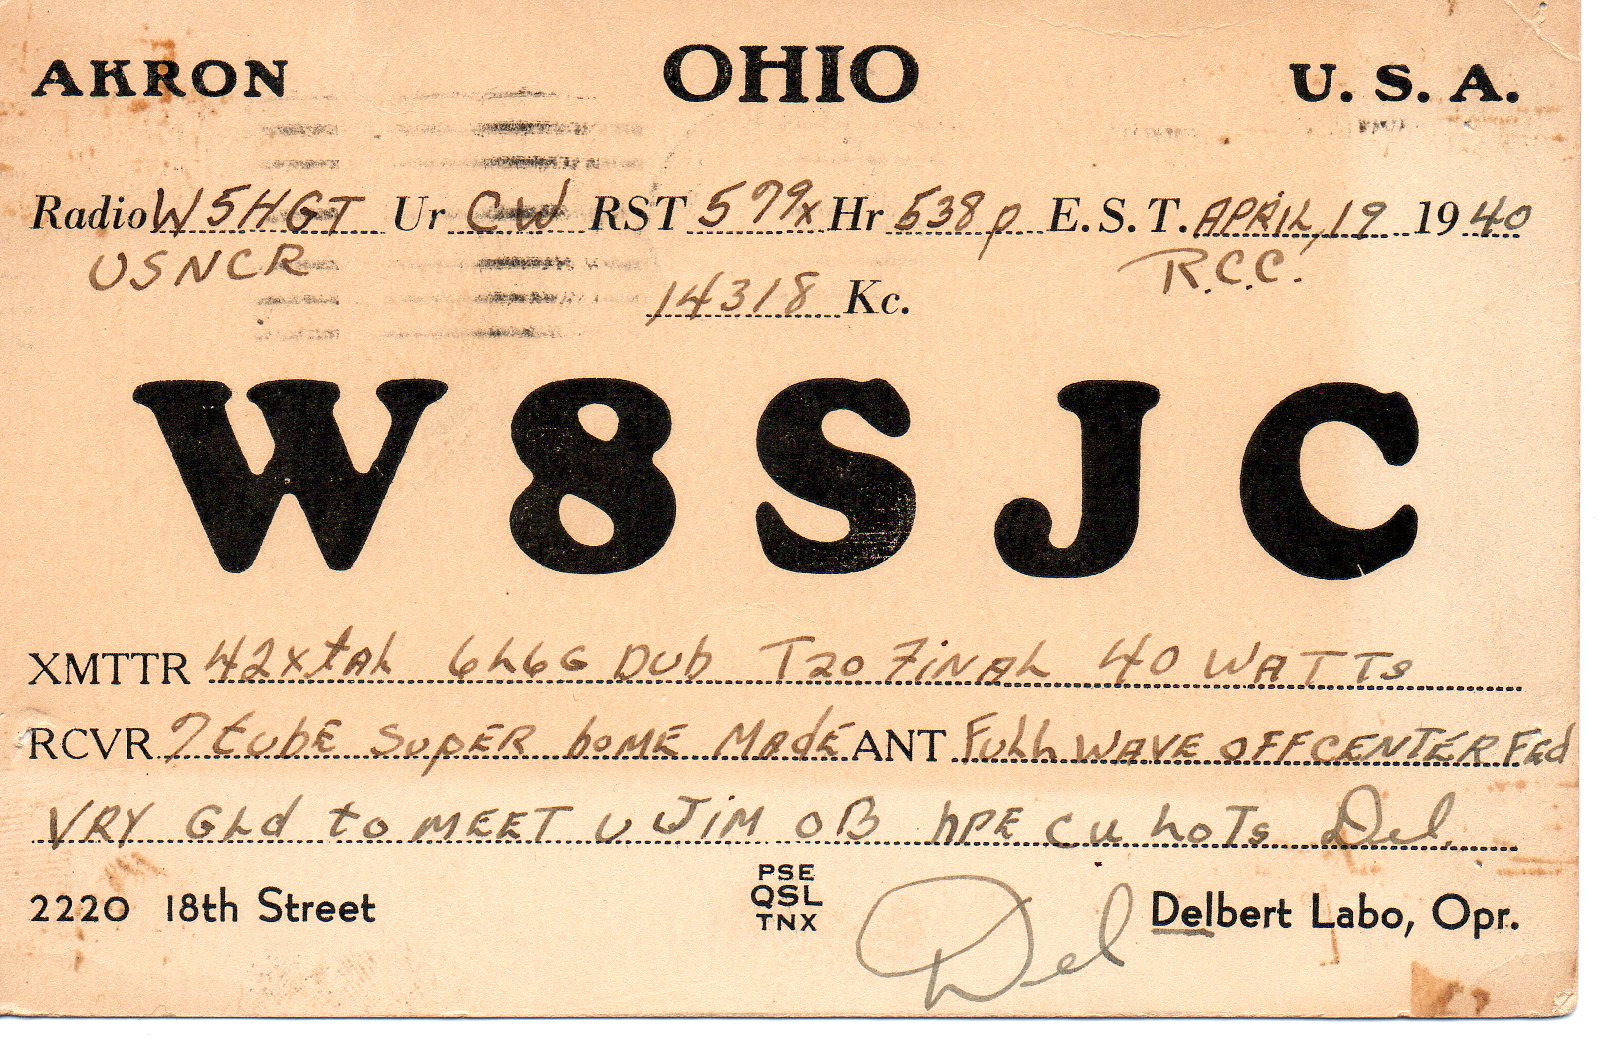 AKRON OHIO U. S. A.
Radio W5HGT Ur CW RST 579x Hr 538p E. S. T. APRIL, 19 1940
USNCR R.C.C.
14318 Kc.
W8SJC
XMTTR 42 xtAL 6L6G Dub T20 FiNAL 40 WATTs
RCVR 7 tubE SupER homE MAdE ANT FuLL WAVE OFFCENTER Fed
VRY GLd to MEET U JiM OB hPE CU LoTs Del.
2220 18th Street PSE Delbert Labo, Opr.
QSL
TNX
Del